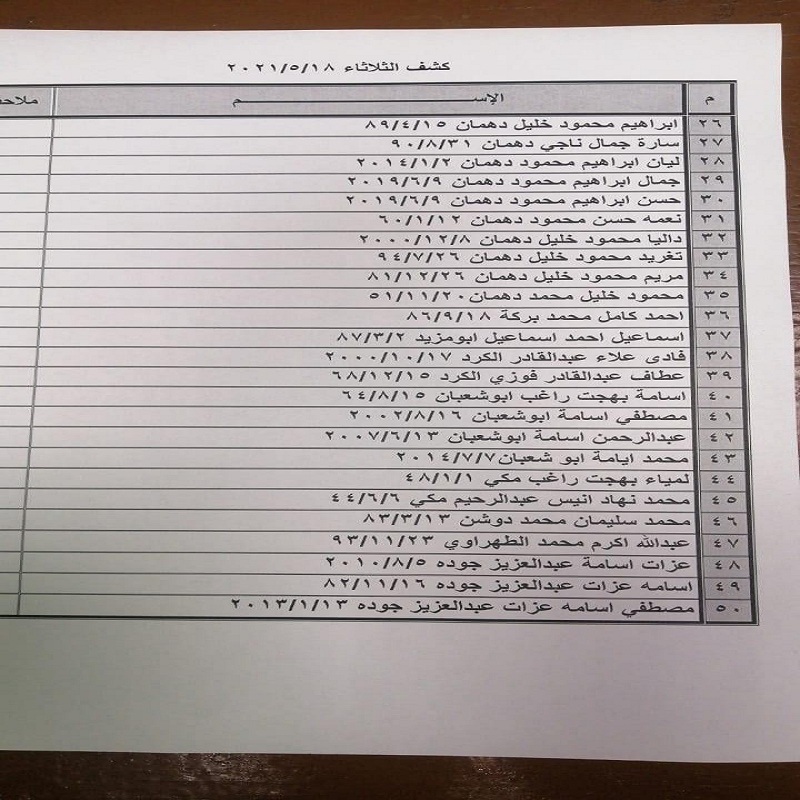 كشف الثلاثاء ٢٠٢١/٥/١٨
م الإســـــم ملاحـ
٢٦ ابراهيم محمود خليل دهمان ٨٩/٤/١٥
٢٧ سارة جمال ناجي دهمان ٩٠/٨/٣١
٢٨ ليان ابراهيم محمود دهمان ٢٠١٤/١/٢
٢٩ جمال ابراهيم محمود دهمان ٢٠١٩/٦/٩
٣٠ حسن ابراهيم محمود دهمان ٢٠١٩/٦/٩
٣١ نعمه حسن محمود دهمان ٦٠/١/١٢
٣٢ داليا محمود خليل دهمان ٢٠٠٠/١٢/٨
٣٣ تغريد محمود خليل دهمان ٩٤/٧/٢٦
٣٤ مريم محمود خليل دهمان ٨١/١٢/٢٦
٣٥ محمود خليل محمد دهمان ٥١/١١/٢٠
٣٦ احمد كامل محمد بركة ٨٦/٩/١٨
٣٧ اسماعيل احمد اسماعيل ابومزيد ٨٧/٣/٢
٣٨ فادى علاء عبدالقادر الكرد ٢٠٠٠/١٠/١٧
٣٩ عطاف عبدالقادر فوزي الكرد ٦٨/١٢/١٥
٤٠ اسامة بهجت راغب ابوشعبان ٦٤/٨/١٥
٤١ مصطفي اسامة ابوشعبان ٢٠٠٢/٨/١٦
٤٢ عبدالرحمن اسامة ابوشعبان ٢٠٠٧/٦/١٣
٤٣ محمد ايامة ابو شعبان ٢٠١٤/٧/٧
٤٤ لمياء بهجت راغب مكي ٤٨/١/١
٤٥ محمد نهاد انيس عبدالرحيم مكي ٤٤/٦/٦
٤٦ محمد سليمان محمد دوشن ٨٣/٣/١٣
٤٧ عبدالله اكرم محمد الطهراوي ٩٣/١١/٢٣
٤٨ عزات اسامة عبدالعزيز جوده ٢٠١٠/٨/٥
٤٩ اسامه عزات عبدالعزيز جوده ٨٢/١١/١٦
٥٠ مصطفي اسامه عزات عبدالعزيز جوده ٢٠١٣/١/١٣